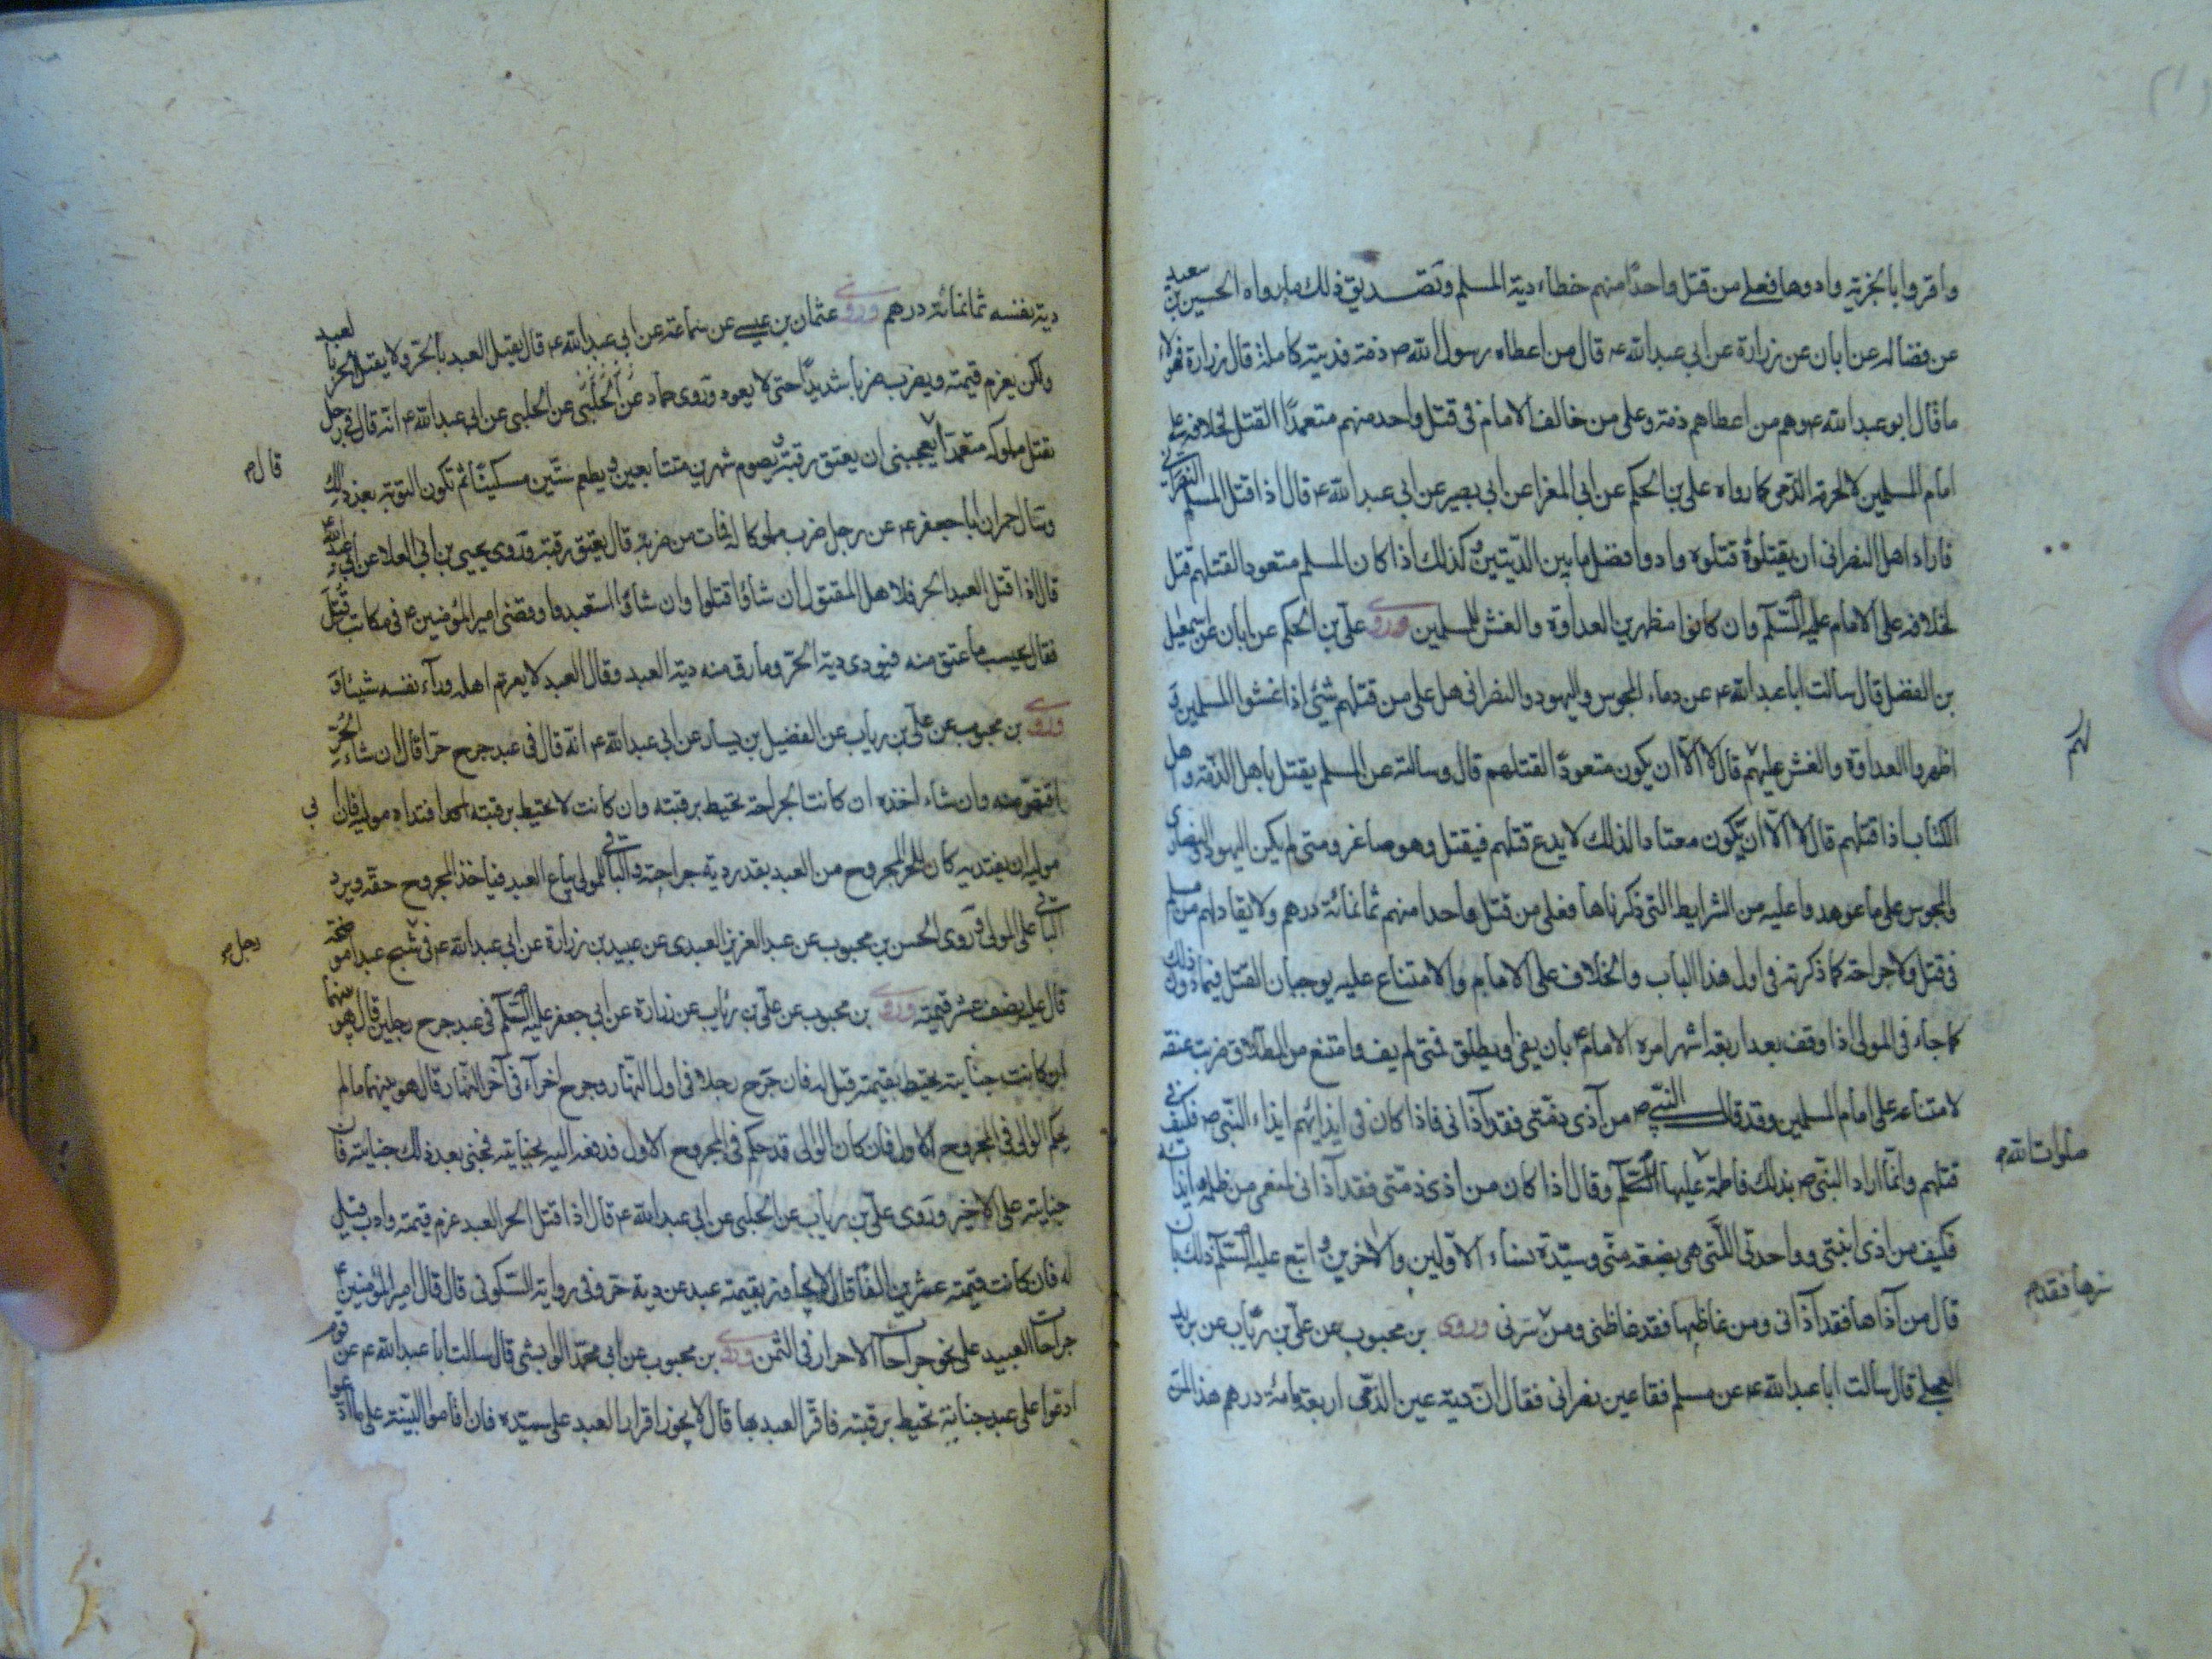 واقروا بالجزية وادوها فعلى من قتل واحدا منهم خطاء دية المسلم وتصديق ذلك ما رواه الحسين بن سعيد
عن فضاله عن ابان عن زرارة عن ابي عبد الله ع قال من اعطاه رسول الله ص ذمة فديته كاملة قال زرارة فهؤلاء
ما قال ابو عبد الله ع وهم من اعطاهم ذمة وعلى من خالف الامام في قتل واحد منهم متعمدا القتل لخلافه على
امام المسلمين لا لحرمة الذمي كما رواه علي بن الحكم عن ابي المغرا عن ابي بصير عن ابي عبد الله ع قال اذا قتل المسلم النصراني
فاراد اهل النصراني ان يقتلوه قتلوه وادوا فضل ما بين الديتين وكذلك اذا كان المسلم متعود القتلهم قتل
لخلافه على الامام عليه السلم وان كانوا مظهرين العداوة والغش للمسلمين وروى علي بن الحكم عن ابان عن اسمعيل
بن الفضل قال سالت ابا عبد الله ع عن دماء المجوس واليهود والنصراني هل على من قتلهم شيئ اذا غشوا المسلمين و
اظهروا العداوة والغش عليهم قال لا الا ان يكون متعودا لقتلهم قال وسالته عن المسلم يقتل باهل الذمة واهل
لهم
الكتاب اذا قتلهم قال لا الا ان يكون معتادا لذلك لا يدع قتلهم فيقتل وهو صاغر ومتى لم يكن اليهود والنصارى
والمجوس على ما عوهدوا عليه من الشرايط التي ذكرناها فعلى من قتل واحدا منهم ثمانمائة درهم ولا يقاد لهم من مسلم
في قتل ولا جراحة كما ذكرته في اول هذا الباب والخلاف على الامام والامتناع عليه يوجبان القتل فيما دون ذلك
كما جاء في المولى اذا وقف بعد اربعة اشهر امره الامام ع بان يفي او يطلق فمتى لم يف وامتنع من الطلاق ضربت عنقه
لامتناعه على امام المسلمين وقد قال النبي ص من آذى ذمتي فقد آذاني فاذا كان في ايذائهم ايذاء النبي ص فكيف في
قتلهم وانما اراد النبي ص بذلك فاطمة عليها السلم وقال اذا كان من اذى ذمتي فقد آذاني لمنعي من ظلمه وايذائه
صلوات الله م
فكيف من اذى ابنتي وواحدتي اللتي هي بضعة مني وسيدة نساء الاولين والاخرين واتبع عليه السلم ذلك بان
قال من آذاها فقد آذاني ومن غاظها فقد غاظني ومن سرني وروى بن محبوب عن علي بن رئاب عن بريد
سرها فقد م
العجلي قال سالت ابا عبد الله ع عن مسلم فقا عين نصراني فقال ان دية عين الذمي اربعة مائة درهم هذا لمن
دية نفسه ثمانمائة درهم وروى عثمان بن عيسى عن سماعة عن ابي عبد الله ع قال يقتل العبد بالحر ولا يقتل الحر بالعبد
ولكن يغرم قيمته ويضرب ضربا شديدا حتى لا يعود وروى حماد عن الحلبي عن الحلبي عن ابي عبد الله ع انه قال في رجل
يقتل مملوكه متعمدا يعجبني ان يعتق رقبة ويصوم شهرين متتابعين ويطعم ستين مسكينا ثم تكون التوبة بعد ذلك
قال م
وسال حمران ابا جعفر ع عن رجل ضرب مملوكا له فمات من ضربه قال يعتق رقبة وروى يحيى بن ابي العلا عن ابي عبد الله ع
قال اذا قتل العبد الحر فلاهل المقتول ان شاؤا قتلوا وان شاؤا استعبدوا وقضى امير المؤمنين ع في مكاتب قتل
فقال يحسب ما عتق منه فيودى دية الحر وما رق منه دية العبد وقال العبد لا يغرم اهله وراء نفسه شيئا و
وروى بن محبوب عن علي بن رياب عن الفضيل بن يسار عن ابي عبد الله ع انه قال في عبد جرح حرا قال ان شاء الحر
اقتص منه وان شاء اخذه ان كانت الجراحة تحيط برقبته وان كانت لا تحيط برقبته افتداه موليه فان ابى
موليه ان يفتديه كان للحر المجروح من العبد بقدر دية جراحته والباقي للمولى يباع العبد فياخذ المجروح حقه ويرد
الباقي على المولى وروى الحسن بن محبوب عن عبد العزيز العبدي عن عبيد بن زرارة عن ابي عبد الله ع في شج عبدا موضحة
رجل م
قال عليه نصف عشر قيمته وروى بن محبوب عن علي بن رئاب عن زرارة عن ابي جعفر عليه السلم في عبد جرح رجلين قال هو بينهما
ان كانت جنايته تحيط بقيمته قيل له فان جرح رجلا في اول النهار وجرح اخر في آخر النهار قال هو بينهما ما لم
يحكم الوالي في المجروح الاول فان كان الوالي قد حكم في المجروح الاول فدفعه اليه بجنايته فجنى بعد ذلك جناية فان
جنايته على الاخير وروى علي بن رياب عن الحلبي عن ابي عبد الله ع قال اذا قتل الحر العبد غرم قيمته وادب قيل
له فان كانت قيمته عشرين الفا قال لا يجاوز بقيمة عبد عن دية حر وفي رواية السكوني قال قال امير المؤمنين ع
جراحات العبيد على نحو جراحات الاحرار في الثمن وروى بن محبوب عن ابي محمد الوابشي قال سالت ابا عبد الله ع عن قوم
ادعوا على عبد جناية تحيط برقبته فاقر العبد بها قال لا يجوز اقرار العبد على سيده فان اقاموا البينة على ما ادعوا